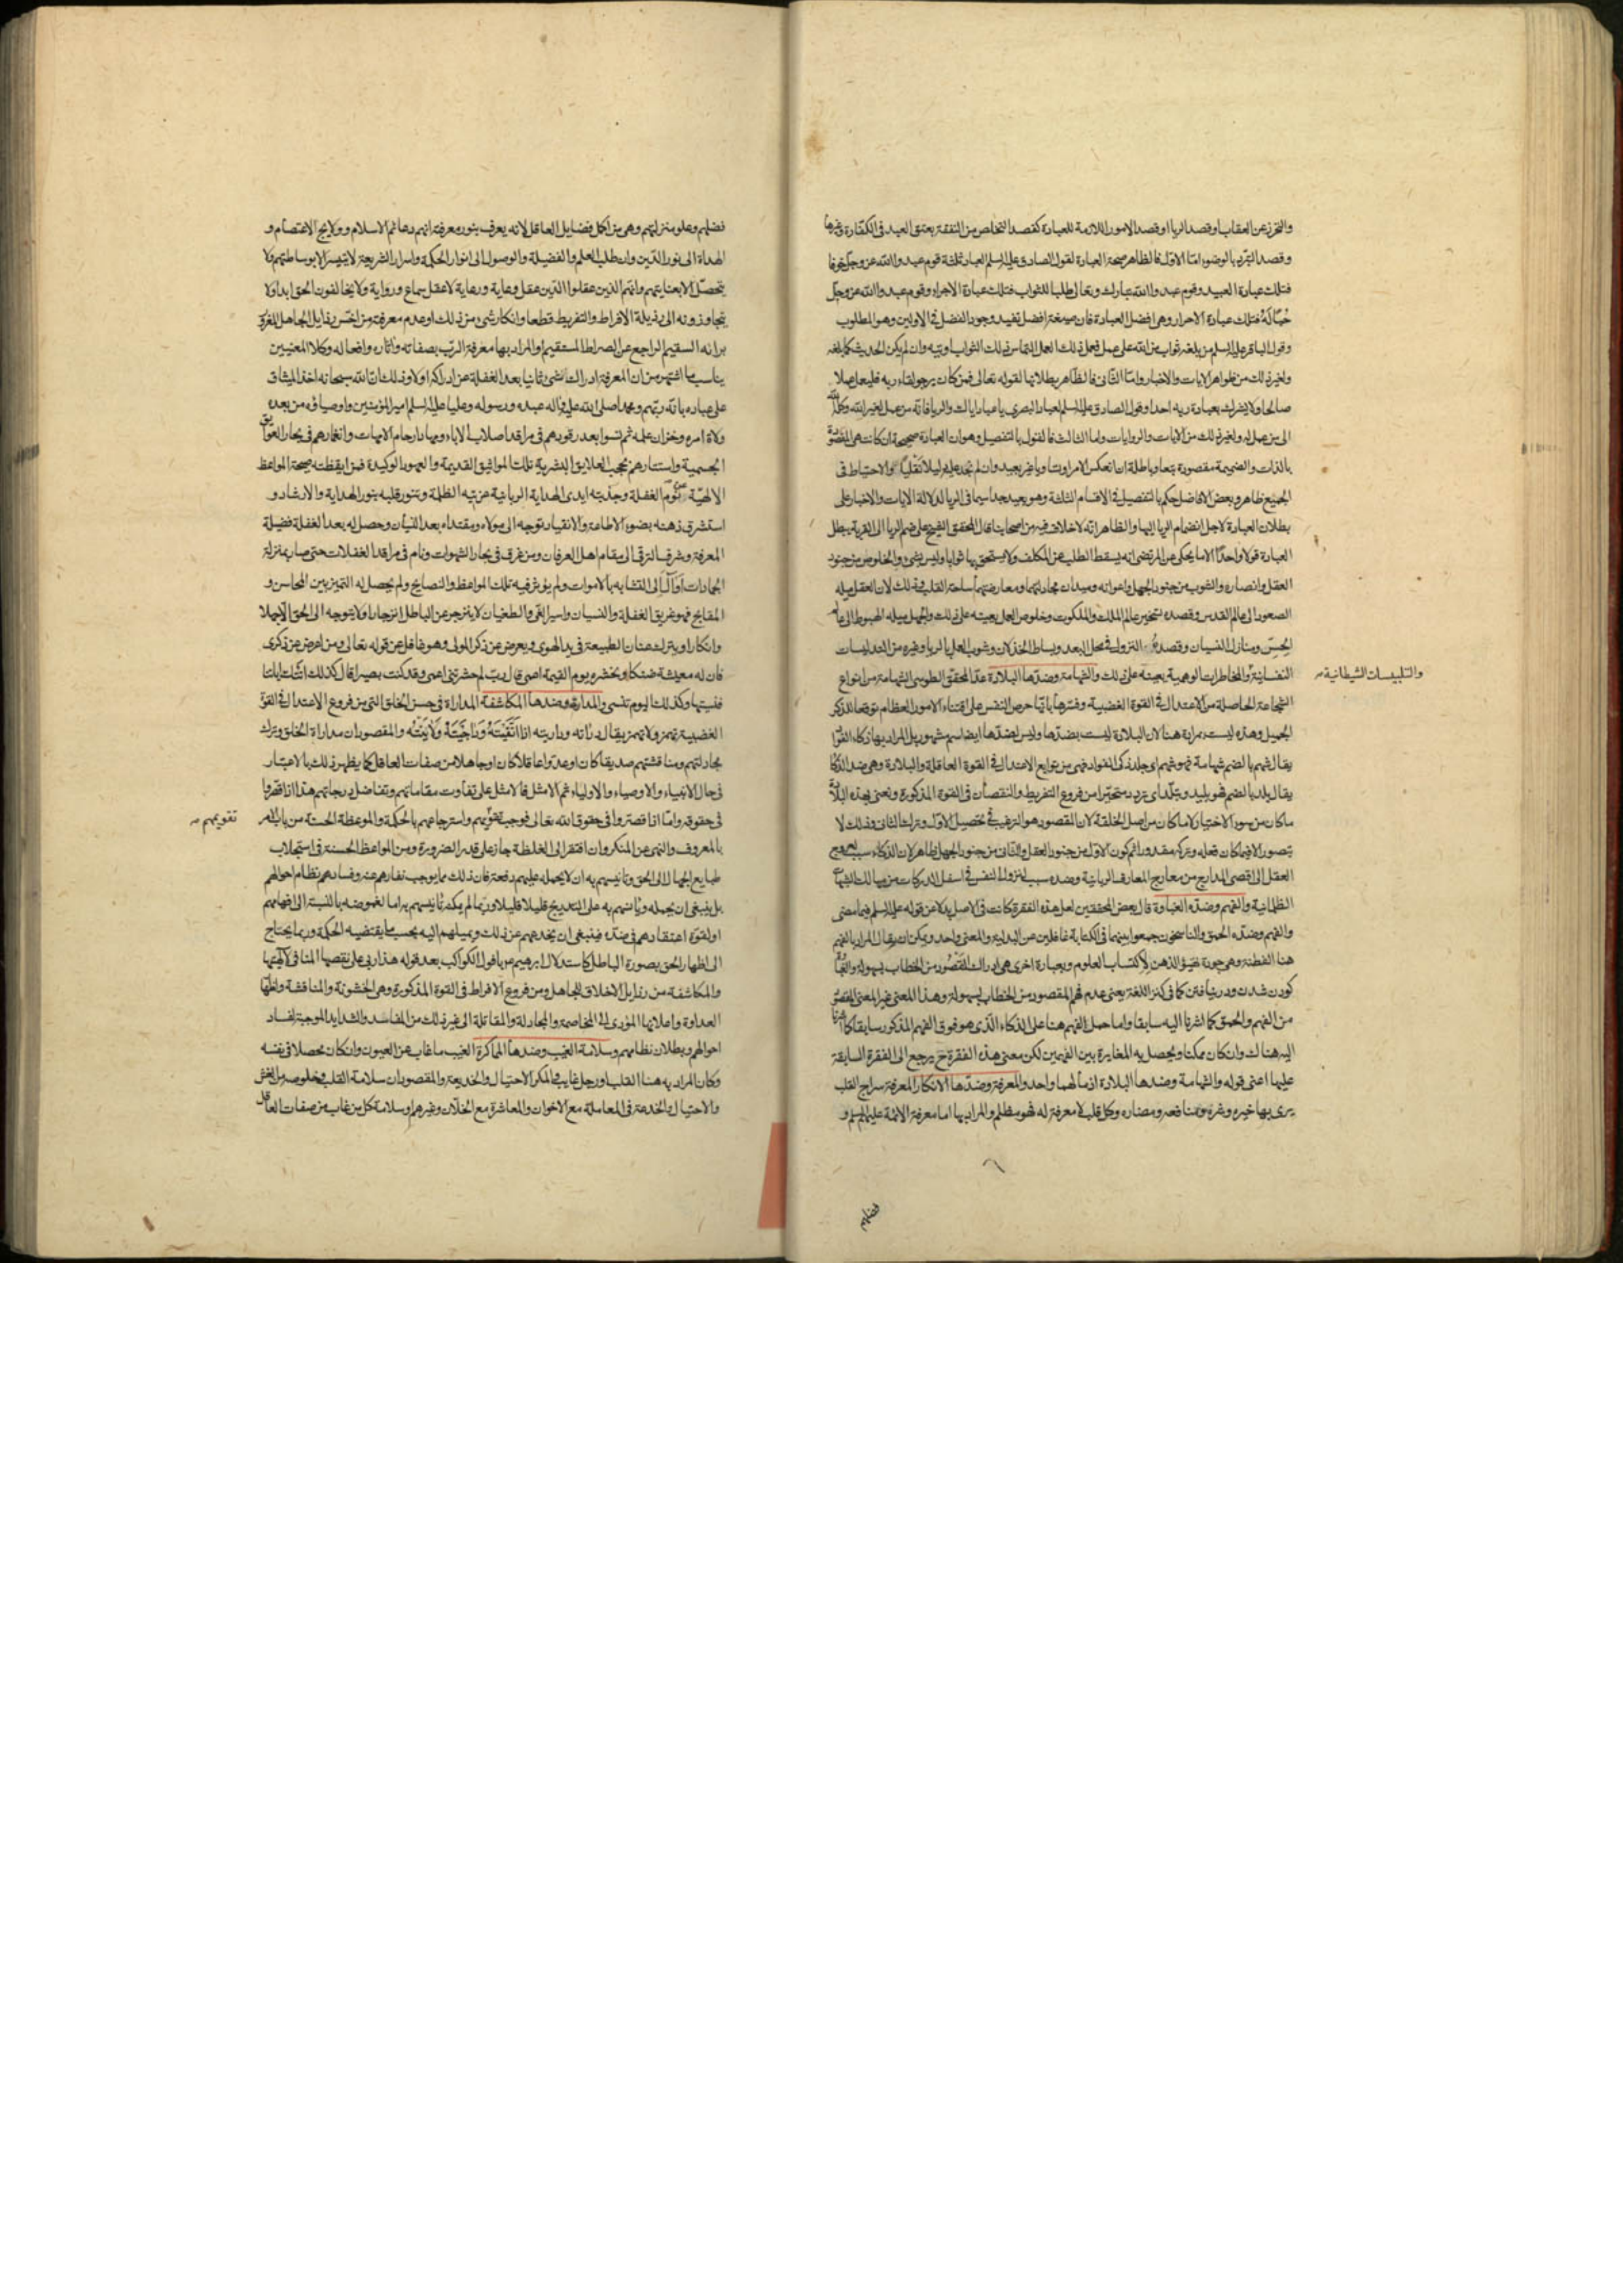 والتحرز عن العقاب او قصد الريا او قصد الامور اللازمة للعبادة كقصد التخلص من النفقة بعتق العبد فى الكفارة وغيرها
وقصد التبرد بالوضوء امّا الاول فالظاهر صحة العبادة لقول الصادق عليه السلم العباد ثلثة قوم عبدوا الله عز وجل خوفا
فتلك عبادة العبيد وقوم عبدوا الله تبارك وتعالى طلبا للثواب فتلك عبادة الاجراء وقوم عبدوا الله عز وجل
حُبّا لَهُ فتلك عبادة الاحرار وهى افضل العبادة فان صيغة افضل تفيد وجود الفضل فى الاولين وهو المطلوب
وقول الباقر عليه السلم من بلغه ثواب من الله على عمل فعمل ذلك العمل التماس ذلك الثواب اوتيه وان لم يكن الحديث كما بلغه
ولغير ذلك من ظواهر الايات والاخبار وامّا الثانى فالظاهر بطلانها لقوله تعالى فمن كان يرجو لقاء ربه فليعمل عملا
صالحا ولا يشرك بعبادة ربه احدا وقول الصادق عليه السلم لعباد البصرى يا عباد اياك والريا فانه من عمل لغير الله وكله الله
الى من عمل له ولغير ذلك من الايات والروايات واما الثالث فالقول بالتفصيل وهو ان العبادة صحيحة ان كانت هى المقصودة
بالذات والضميمة مقصودة تبعا وباطلة ان انعكس الامر او تساويا غير بعيد وان لم نجد عليه دليلا نَقْلِيًّا والاحتياط فى
الجميع ظاهر وبعض الافاضل حكم بالتفصيل فى الاقسام الثلثة وهو بعيد جدا سيما فى الريا لدلالة الايات والاخبار على
بطلان العبادة لاجل انضمام الريا اليها والظاهر انه لا خلاف فيه من اصحابنا قال المحقق الشيخ على ضم الريا الى القربة يبطل
العبادة قولا واحدا الا ما يحكى عن المرتضى انه يسقط الطلب عن المكلف ولا يستحق بها ثوابا وليس بشىء والخلوص من جنود
العقل وانصاره والشوب من جنود الجهل واعوانه وميدان مجادلتهما ومعارضتهما ساحة القلب وذلك لان العقل ميله
الصعود الى عالم القدس وقصده تسخير عالم الملك والملكوت وخلوص العمل يعينه على ذلك والجهل ميله الهبوط الى عالم
الحِسّ ومنازل النسيان وقصده النزول فى محل البعد وبساط الخذلان وشوب العمل بالريا وغيره من التدليسات
النفسانية والمخاطرات الوهمية يعينه على ذلك والشهامة وضدّها البلادة عدّ المحقق الطوسى الشهامة من انواع
والتلبيسات الشيطانية
الشجاعة الحاصلة من الاعتدال فى القوة الغضبية وفسّرها بانّها حرص النفس على اقتناء الامور العظام توقعا للذكر
الجميل وهذه ليست بمرادة هنا لان البلادة ليست بضدّها وليس لضدّها ايضا اسم مشهور بل المراد بها ذكاء الفؤاد
يقال شهم بالضم شهامة فهو شهم اى جلد ذكى الفؤاد فهى من توابع الاعتدال فى القوة العاقلة والبلادة وهى ضد الذكا
يقال بلد بالضم فهو بليد وتبلّد اى تردد متحيّرا من فروع التفريط والنقصان فى القوة المذكورة ونعنى بهذه البلادة
ما كان من سوء الاختيار لا ما كان من اصل الخلقة لان المقصود هو الترغيب فى تحصيل الاول وترك الثانى وذلك لا
يتصور الا فيما كان فعله وتركه مقدورا ثم كون الاول من جنود العقل والثانى من جنود الجهل ظاهر لان الذكاء سبب لعروج
العقل الى اقصى المدارج من معارج المعارف الربانية وضده سبب لنزول النفس فى اسفل الدركات من مهالك الشبهات
الظلمانية والفهم وضدّه الغباوة قال بعض المحققين لعل هذه الفقرة كانت فى الاصل بدلا عن قوله عليه السلم فيما مضى
والفهم وضدّه الحمق والناسخون جمعوا بينهما فى الكتابة غافلين عن البدلية والمعنى واحد ويمكن ان يقال المراد بالفهم
هنا الفطنة وهى جودة تهيؤ الذهن لاكتساب العلوم وبعبارة اخرى هى ادراك المَقْصُود من الخطاب بسهولة والغباوة
كودن شدن ودر نيافتن كما فى كنز اللغة يعنى عدم فهم المقصود من الخطاب بسهولة وهذا المعنى غير المعنى المقصود
من الفهم والحمق كما اشرنا اليه سابقا واما حمل الفهم هنا على الذكاء الذى هو فوق الفهم المذكور سابقا كما اشرنا
اليه هناك وان كان ممكنا ويحصل به المغايرة بين الفهمين لكن معنى هذه الفقرة ح يرجع الى الفقرة السابقة
عليها اعنى قوله والشهامة وضدها البلادة اذ مآلهما واحد والمعرفة وضدّها الانكار المعرفة سراج القلب
يرى بها خيره وشره ومنافعه ومضاره وكل قلب لا معرفة له فهو مظلم والمراد بها اما معرفة الائمة عليهم السلم و
فضلهم
فضلهم وعلو منزلتهم وهى من اكمل فضايل العاقل لانه يعرف بنور معرفته انهم دعائم الاسلام وولايج الاعتصام و
الهداة الى نور الدّين وان طلب العلم والفضيلة والوصول الى انوار الحكمة واسرار الشريعة لا يتيسر الا بوساطتهم ولا
يتحصّل الا بعنايتهم وانهم الذين عقلوا الدّين عقل وعاية ورعاية لا عقل سماع ورواية ولا يخالفون الحق ابدا ولا
يتجاوزونه الى رذيلة الافراط والتفريط قطعا وانكار شىء من ذلك او عدم معرفته من اخسّ رذايل الجاهل المغرور
برائه السقيم الراجع عن الصراط المستقيم او المراد بها معرفة الربّ بصفاته واثاره وافعاله وكلا المعنيين
يناسب ما اشتهر من ان المعرفة ادراك الشىء ثانيا بعد الغفلة عن ادراكه اولا وذلك ان الله سبحانه اخذ الميثاق
على عباده بانّه ربّهم ومحمد صلى الله عليه وآله عبده ورسوله وعليا عليه السلم امير المؤمنين واوصياؤه من بعده
ولاة امره وخزان علمه ثم نسوا بعد رقودهم فى مراقد اصلاب الاباء ومهاد ارحام الامهات وانغمارهم فى بحار العوايق
الجسمية واستتارهم بحجب العلايق البشرية تلك المواثيق القديمة والعهود الوكيدة فمن ايقظته صيحة المواعظ
الالهيّة عن نوم الغفلة وجذبته ايدى الهداية الربانية عن تيه الظلمة وتنور قلبه بنور الهداية والارشاد و
استشرق ذهنه بضوء الاطاعة والانقياد توجه الى مولاه ومقتداه بعد النسيان وحصل له بعد الغفلة فضيلة
المعرفة وشرف الترقى الى مقام اهل العرفان ومن غرق فى بحار الشهوات ونام فى مراقد الغفلات حتى صار بمنزلة
الجمادات اَوْ آلَ الى التشابه بالاموات ولم يؤثر فيه تلك المواعظ والنصايح ولم يحصل له التميز بين المحاسن و
المقابح فهو غريق الغفلة والنسيان واسير الغى والطغيان لا ينزجر عن الباطل انزجارا ولا يتوجه الى الحق الا جهلا
وانكارا ويترك عنان الطبيعة فى يد الهوى ويعرض عن ذكر المولى وهو غافل عن قوله تعالى ومن اعرض عن ذكرى
فان له معيشة ضنكا ونحشره يوم القيمة اعمى قال ربّ لم حشرتنى اعمى وقد كنت بصيرا قال كذلك اتتك اياتنا
فنسيتها وكذلك اليوم تنسى والمداراة وضدها المكاشفة المداراة فى حسن الخلق التى من فروع الاعتدال فى القوة
الغضبية تهمز ولا تهمز يقال دارأته وداريته اذا اتَّقَيْتَهُ وَدَاجَيْتَهُ وَلَايَنْتَهُ والمقصود ان مداراة الخلق وترك
مجادلتهم ومناقشتهم صديقا كان او عدوا عاقلا كان او جاهلا من صفات العاقل كما يظهر ذلك بالاعتبار
فى حال الانبياء والاوصياء والاولياء ثم الامثل فالامثل على تفاوت مقاماتهم وتفاضل درجاتهم هذا اذا قصّروا
فى حقوقه وامّا اذا قصّروا فى حقوق الله تعالى فوجب تقويمهم واسترجاعهم بالحكمة والموعظة الحسنة من باب الامر
تقويمهم
بالمعروف والنهى عن المنكر وان افتقر الى الغلظة جاز على قدر الضرورة ومن المواعظ الحسنة فى استجلاب
طبايع الجهال الى الحق وتأنيسهم به ان لا يحمله عليهم دفعة فان ذلك مما يوجب نفارهم عنه وفساد نظام احوالهم
بل ينبغى ان يحمله ويأنسهم به على التدريج قليلا قليلا وربما لم يمكنه تأنيسهم به اما لغموضه بالنسبة الى افهامهم
او لقوة اعتقادهم فى ضدّه فينبغى ان يخدعهم عن ذلك ويميلهم اليه بحسب ما يقتضيه الحكمة وربما يحتاج
الى اظهار الحق بصورة الباطل كاستدلال ابرهيم ع بافول الكواكب بعد قوله هذا ربى على نقصها المنافى لآلهيتها
والمكاشفة من رذايل الاخلاق للجاهل ومن فروع الافراط فى القوة المذكورة وهى الخشونة والمناقشة واظهار
العداوة واعلانها المؤدى الى المخاصمة والمجادلة والمقاتلة الى غير ذلك من المفاسد والشدايد الموجبة لفساد
احوالهم وبطلان نظامهم وسلامة الغيب وضدها المماكرة الغيب ما غاب عن العيون وان كان محصلا فى نفسه
وكان المراد به هنا القلب او رجل غايب والمكر الاحتيال والخديعة والمقصود ان سلامة القلب وخلوصه من الغش
والاحتيال والخدعة فى المعاملة مع الاخوان والمعاشرة مع الخلّان وغيرهم او سلامة كل من غاب من صفات العاقل